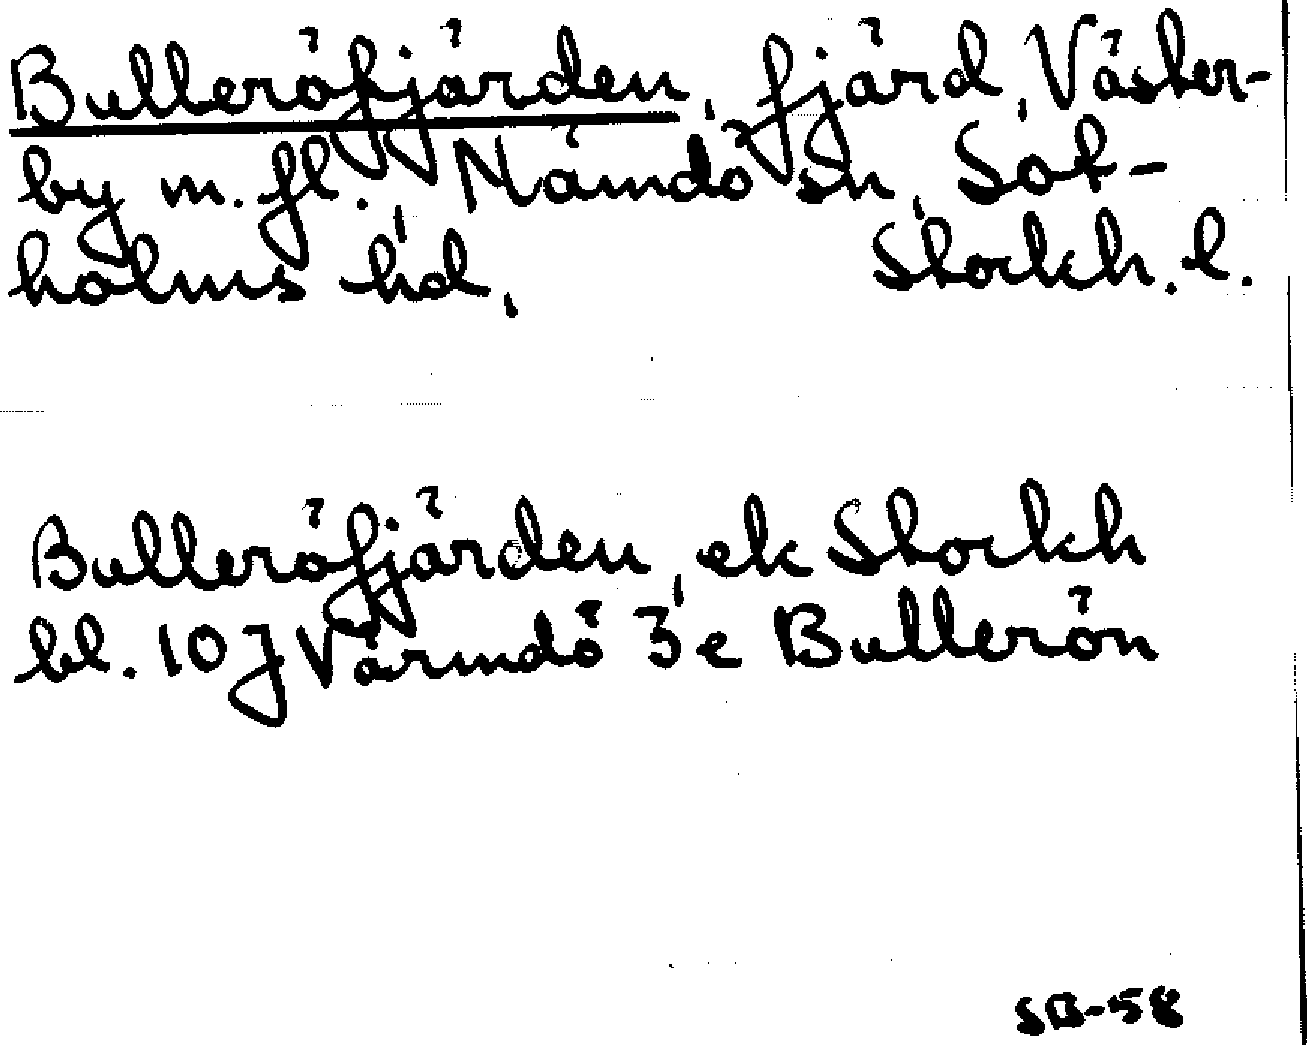 Bulleröfjärden, fjärd, Väster-
by m. fl., Nämdö sn, Sot-
holms hd, Stockh. l.
Bulleröfjärden, ek Stockh
bl. 10J Värmdö 3e Bullerön
SB-58